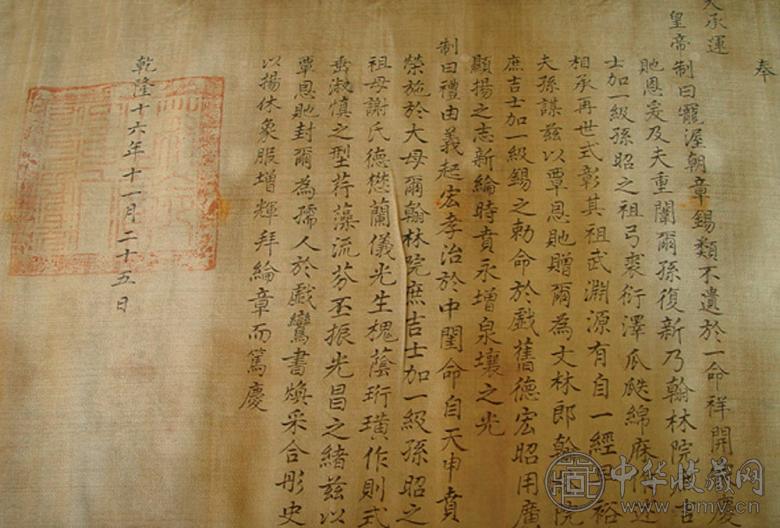 奉
天承運
皇帝制曰寵渥朝章錫類不遺於一命祥開
貤恩爰及夫重闈爾孫復新乃翰林院庶吉
士加一級孫昭之祖弓裘衍澤瓜瓞綿庥
相承再世式彰其祖武淵源有自一經已裕
夫孫謀茲以覃恩貤贈爾為文林郎翰林院
庶吉士加一級錫之勅命於戲舊德宏昭用廣
顯揚之志新綸時賁永增泉壤之光
制曰禮由義起宏孝治於中閨命自天申賁
榮施於大母爾翰林院庶吉士加一級孫昭之
祖母謝氏德懋蘭儀光生槐蔭珩璜作則式
垂淑慎之型荇藻流芬丕振光昌之緒茲以
覃恩貤封爾為孺人於戲鸞書煥采合彤史
以揚休象服增輝拜綸章而篤慶
乾隆十六年十一月二十五日
中华收藏网
www.pmv.cn